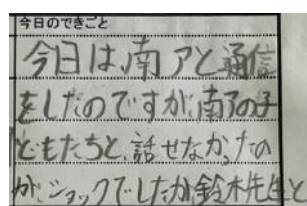 今日のできごと
今日は、南アと通信
をしたのですが、南アの子
どもたちと、話せなかったの
が、ショックでしたが、鈴木先生と